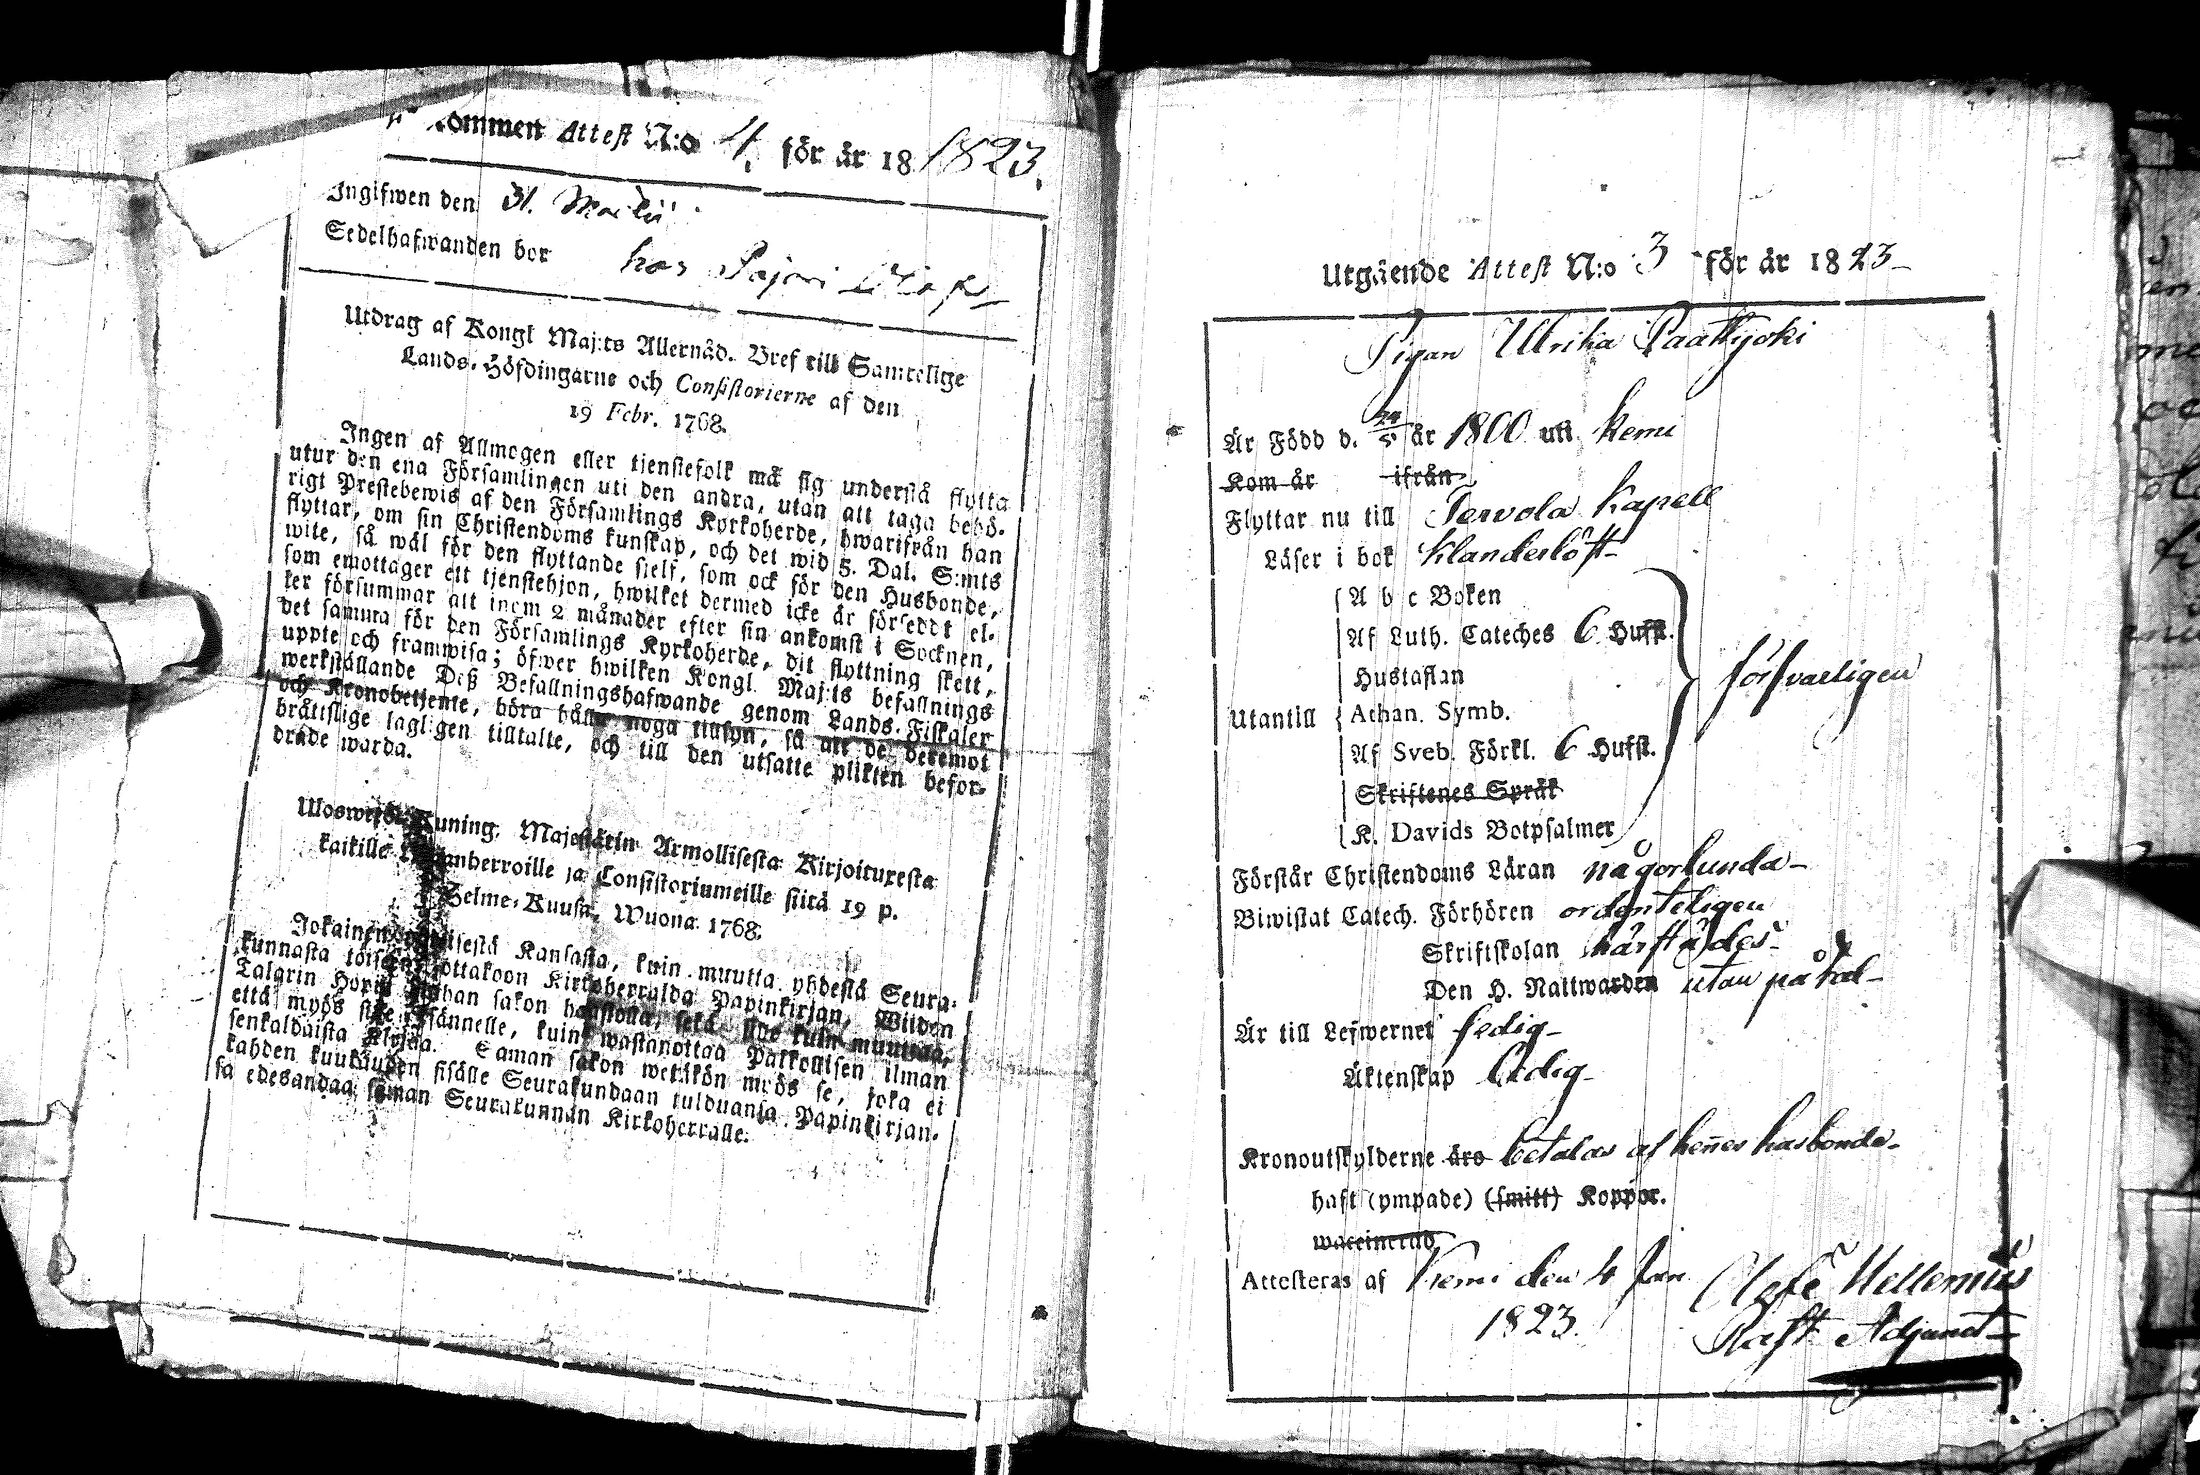 kommen Attest N:o 4. för år 18 1823.
Ingifwen den 31. Martii
Sedelhafwanden bor hos Pajari
Utdrag af Kongl Maj:ts Allernåd. Bref till Samtelige
Lands-Höfdingarne och Consistorierne af den
19 Febr. 1768.
Ingen af Allmogen eller tjenstefolk må sig understå flytta
utur den ena Församlingen uti den andra, utan att taga behö-
rigt Prestebewis af den Församlings Kyrkoherde, hwarifrån han
flyttar, om sin Christendoms kunskap, och det wid 5. Dal. S:mts
wite, så wäl för den flyttande sielf, som ock för den Husbonde,
som emottager ett tjenstehjon, hwilket dermed icke är försedt el-
ler försummar att inom 2 månader efter sin ankomst i Socknen,
det samma för den Församlings Kyrkoherde, dit flyttning skett,
uppte och framwisa; öfwer hwilken Kongl. Maj:ts befallnings
werkställande Deß Befallningshafwande genom Lands-Fiskaler
och Kronobetjente, böra hålla noga tillsyn, så att de deremot
bråttslige lagligen tilltalte, och till den utsatte plikten befor-
drade warda.
Kuning. Majestätin Armollisesta Kirjoituxesta
kaikille Maanherroille ja Consistoriumeille siitä 19 p.
Helme-Kuusa, Wuona 1768.
Jokainen Kansasta, kuin muutta yhdestä Seura-
kunnasta toiseen ottakoon Kirkoherralda Papinkirjan, Wiiden
Talarin Hopia Rahan sakon haastolla, sekä sille kuin muuttaa,
että myös sille Isännelle, kuin wastanottaa Palkollisen ilman
senkaldaista Kirjaa. Saman sakon wetäkön myös se, joka ei
kahden kuukauden sisälle Seurakundaan tulduansa Papinkirjan-
sa edesandaa saman Seurakunnan Kirkoherralle.
Utgående Attest N:o 3 för år 1823
Pigan Ulrika Paakkyoki
Är Född d. 24/5 år 1800 uti Kemi
Kom år ifrån
Flyttar nu till Tervola Kapell
Läser i bok klanderlöst
A b c Boken
Af Luth. Cateches 6 Hufst.
Hustaflan
Utantill Athan. Symb. försvarligen
Af Sveb. Förkl. 6 Hufst.
Skriftenes Språk
K. Davids Botpsalmer
Förstår Christendoms Läran någorlunda
Biwistat Catech. Förhören ordenteligen
Skriftskolan härstädes
Den H. Nattwarden utan påtal
Är till Lefwernet sedig
Äktenskap ledig
Kronoutskylderne äro betalas af hennes husbonde
haft (ympade) (smitt) Koppor.
waccinerad
Attesteras af Kemi den 4 Jan Olof Mellenius
1823. Past. Adjunct